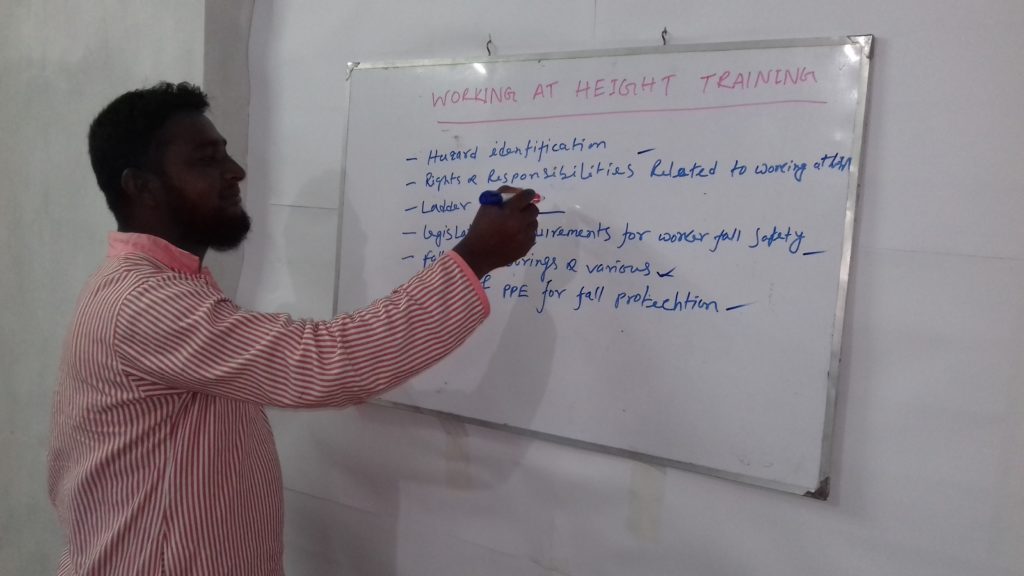 WORKING AT HEIGHT TRAINING
- Hazard identification -
- Rights & Responsibilities Related to working at
- Ladder
- Legisla uirements for worker fall Safety -
- Fall & various ✓
PPE for fall protechtion -